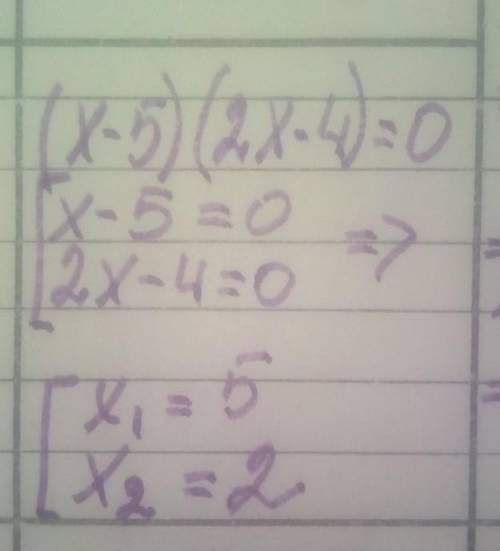 (x-5)(2x-4)=0
[x-5=0
2x-4=0 =>
[x₁=5
x₂=2